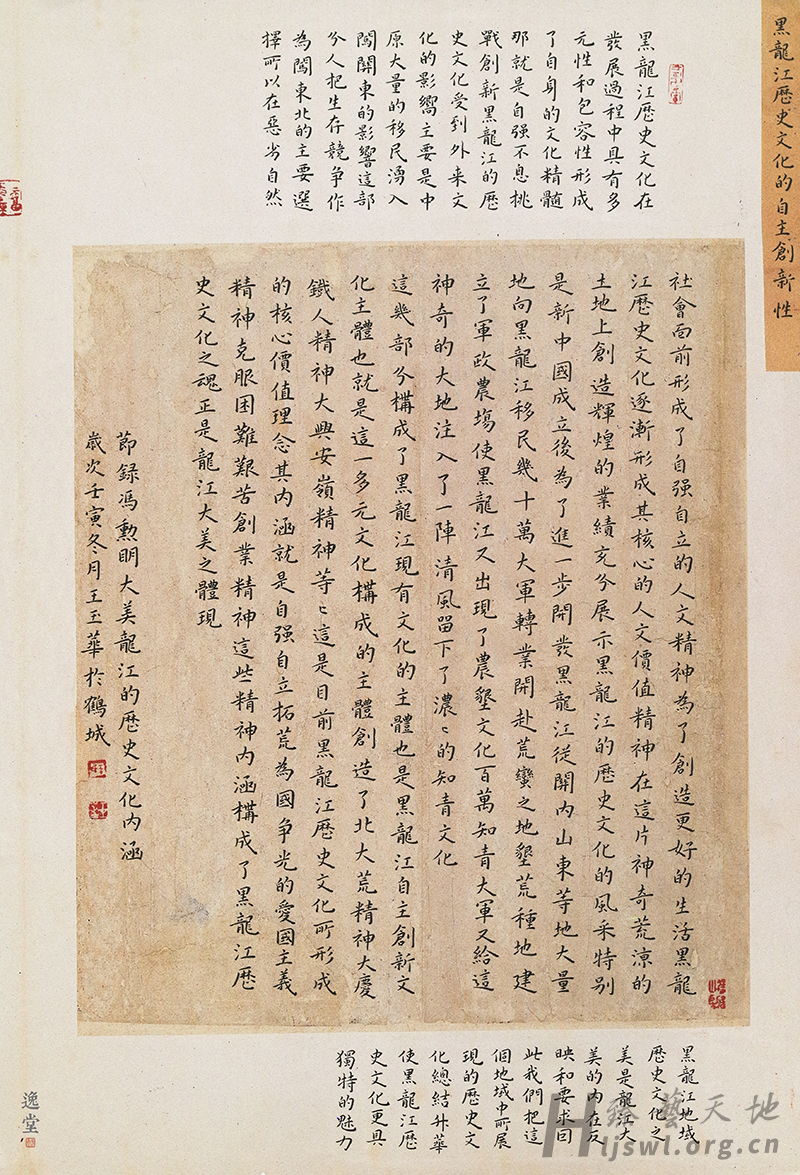 黑龍江歷史文化的自主創新性
黑龍江歷史文化在
發展過程中具有多
元性和包容性形成
了自身的文化精髓
那就是自强不息挑
戰創新黑龍江的歷
史文化受到外来文
化的影嚮主要是中
原大量的移民湧入
闖關東的影響這部
分人把生存競争作
為闖東北的主要選
擇所以在惡劣自然
社會面前形成了自强自立的人文精神為了創造更好的生活黑龍
江歷史文化逐漸形成其核心的人文價值精神在這片神奇荒涼的
土地上創造輝煌的業績充分展示黑龍江的歷史文化的風采特别
是新中國成立後為了進一步開發黑龍江從關内山東等地大量
地向黑龍江移民幾十萬大軍轉業開赴荒蠻之地墾荒種地建
立了軍政農場使黑龍江又出現了農墾文化百萬知青大軍又給這
神奇的大地注入了一陣清風留下了濃〻的知青文化
這幾部分構成了黑龍江現有文化的主體也是黑龍江自主創新文
化主體也就是這一多元文化構成的主體創造了北大荒精神大慶
鐵人精神大興安嶺精神等〻這是目前黑龍江歷史文化所形成
的核心價值理念其内涵就是自强自立拓荒為國争光的愛國主義
精神克服困難艱苦創業精神這些精神内涵構成了黑龍江歷
史文化之魂正是龍江大美之體現
節録馮勲明大美龍江的歷史文化内涵
歲次壬寅冬月王玉華於鶴城
黑龍江地域
歷史文化之
美是龍江大
美的内在反
映和要求因
此我們把這
個地域中所展
現的歷史文
化總結升華
使黑龍江歷
史文化更具
獨特的魅力
逸堂
臻藝天地
Hljswl.org.cn